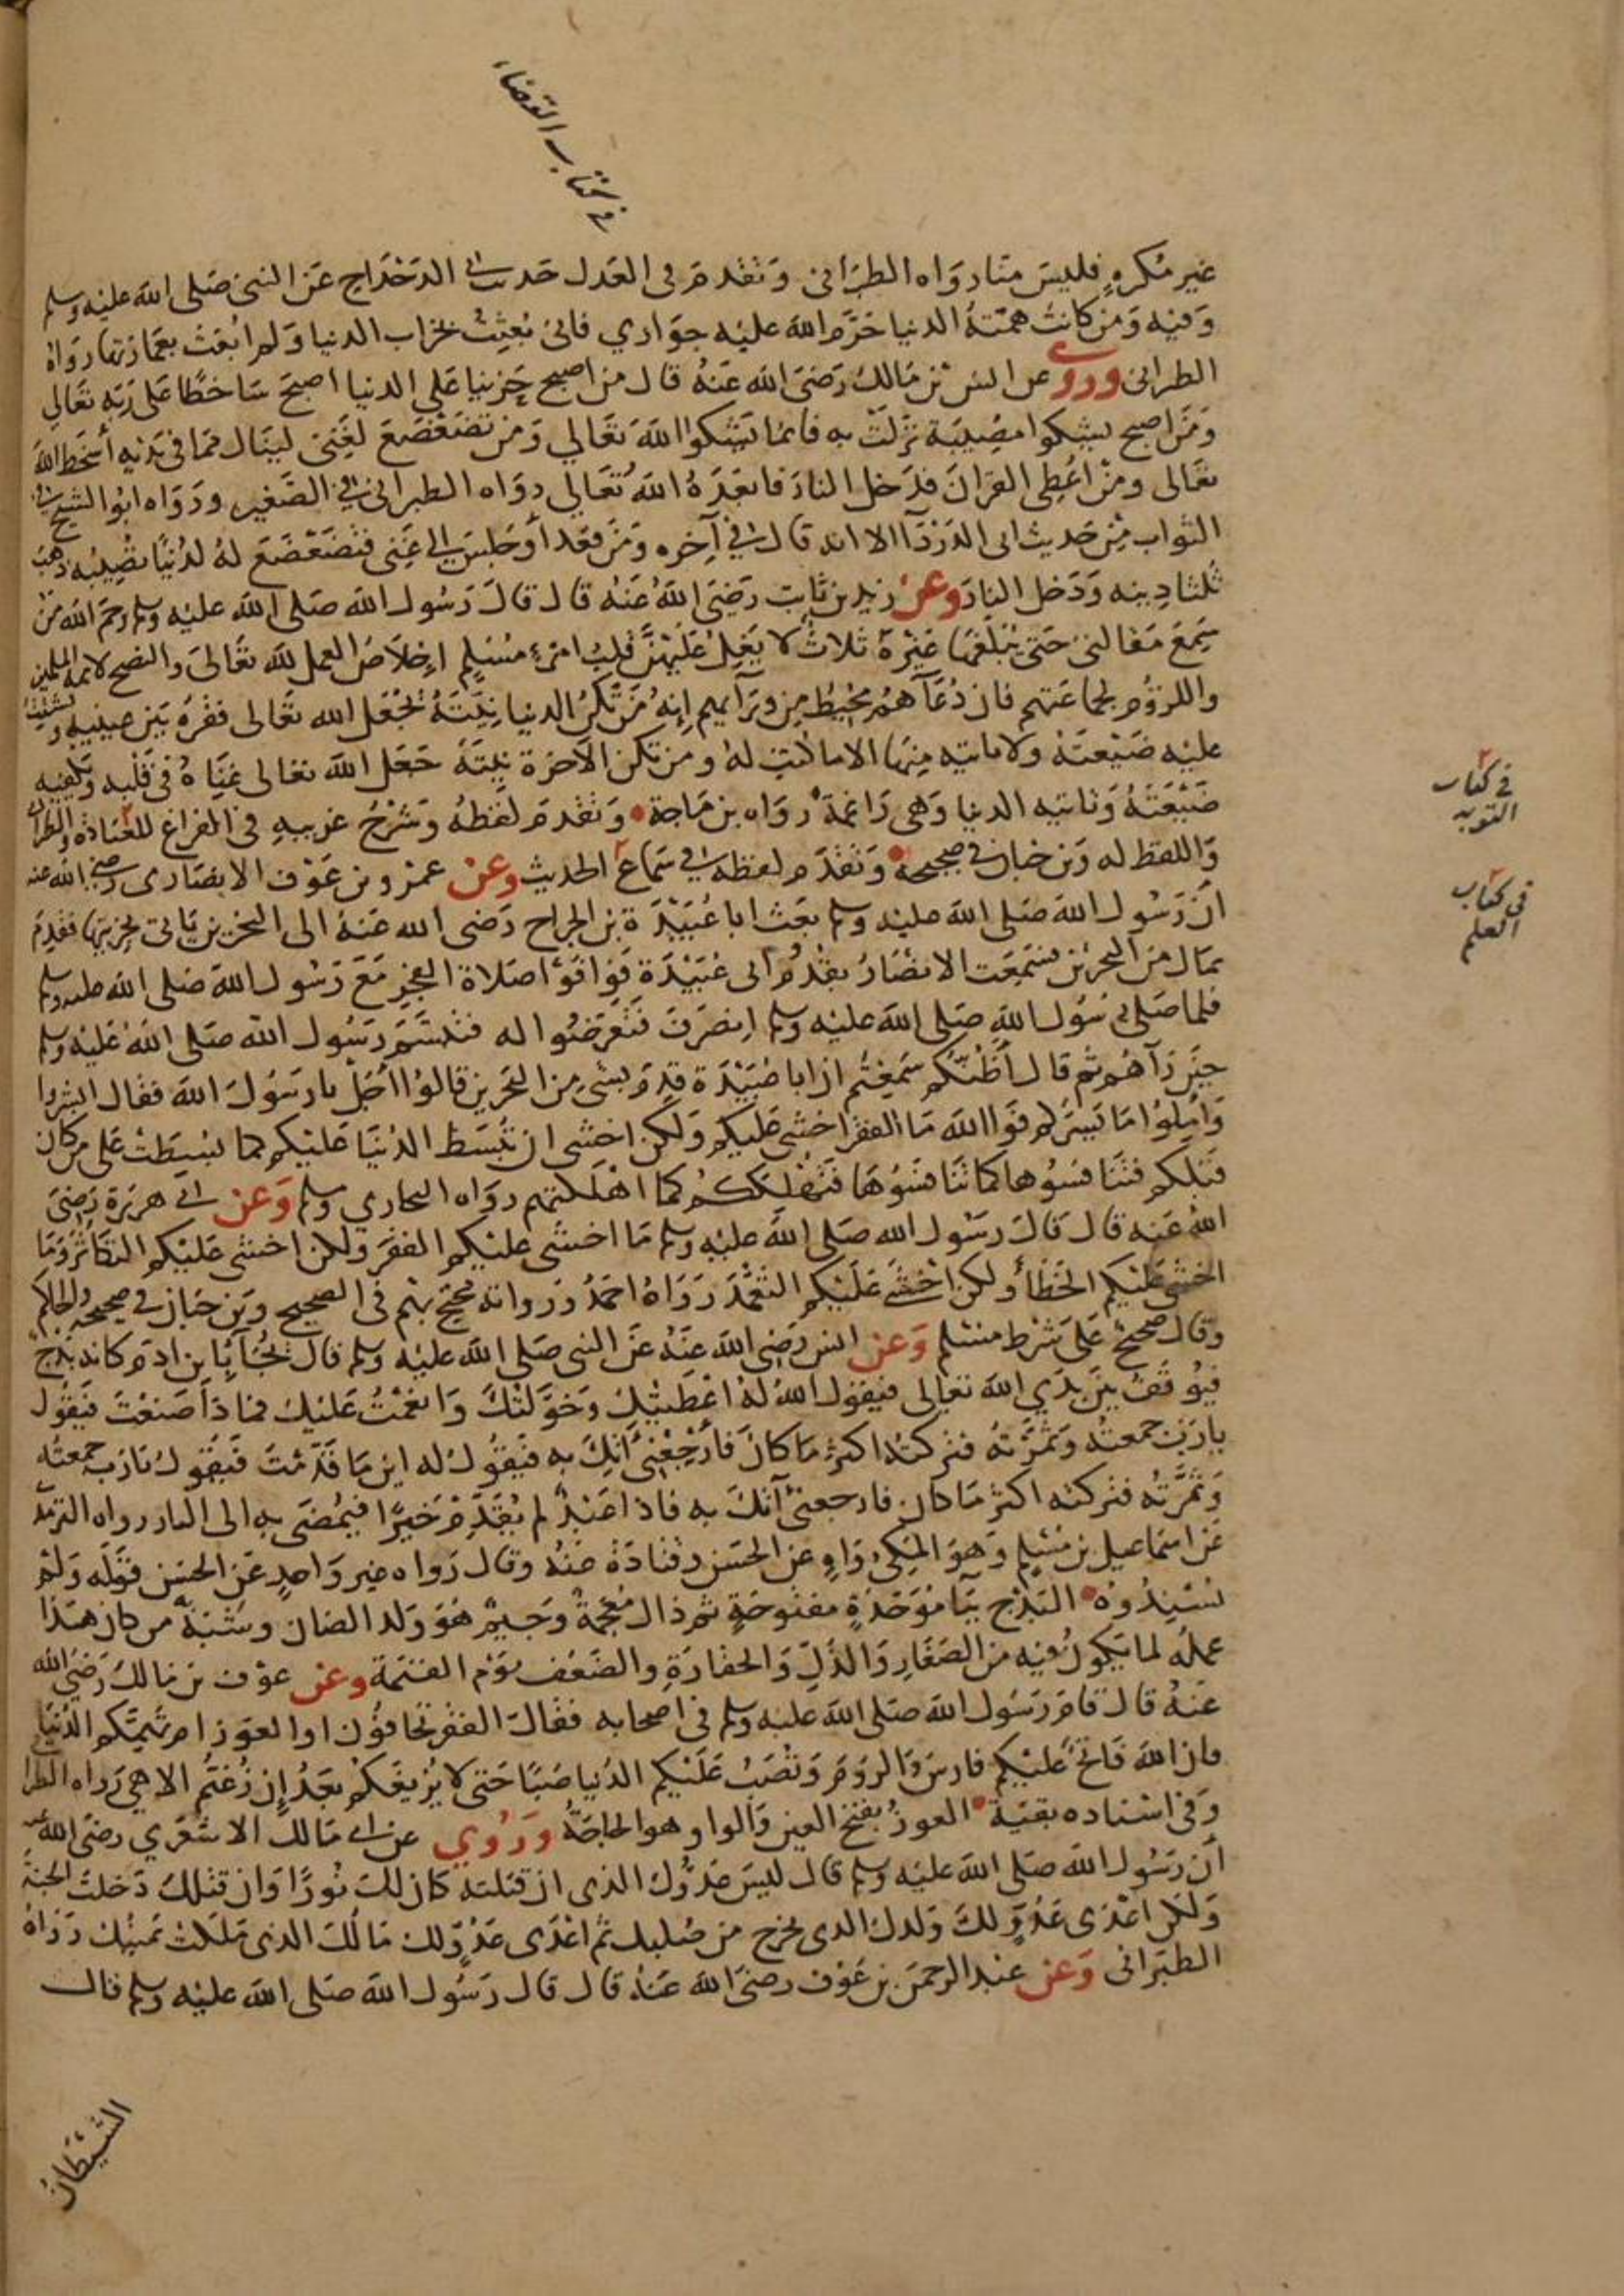 في كتاب القضاء
غير مكره فليس منا رواه الطبراني وتقدم في العدل حديث ابي الدحداح عن النبي صلى الله عليه وسلم
وفيه ومن كانت همته الدنيا حرم الله عليه جواري فاني بعثت بخراب الدنيا ولم ابعث بعمارتها رواه
الطبراني وروي عن انس بن مالك رضي الله عنه قال من اصبح حزينا على الدنيا اصبح ساخطا على ربه تعالى
ومن اصبح يشكوا مصيبة نزلت به فانما يشكوا الله تعالى ومن تضعضع لغني لينال مما في يديه أسخط الله
تعالى ومن اعطي القران فدخل النار فابعده الله تعالى رواه الطبراني في الصغير ورواه ابو الشيخ في
الثواب من حديث ابي الدردآ الا انه قال في آخره ومن قعد أو جلس الى غني فتضعضع له لدنيا تصيبه ذهب
ثلثا دينه ودخل النار وعن زيد بن ثابت رضي الله عنه قال قال رسول الله صلى الله عليه وسلم رحم الله من
سمع مقالتي حتى يبلغها غيره ثلاث لا يغل عليهن قلب امرئ مسلم اخلاص العمل لله تعالى والنصح لائمة المسلمين
واللزوم لجماعتهم فان دعآهم محيط من ورآيهم إنه من تكن الدنيا نيته يجعل الله تعالى فقره بين عينيه ويشتت
عليه ضيعته ولا ياتيه منها الا ما كتب له ومن تكن الاخرة نيته جعل الله تعالى غناه في قلبه ويكفيه
ضيعته وتاتيه الدنيا وهي راغمة رواه بن ماجة وتقدم لفظه وشرح غريبه في الفراغ للعبادة والطبراني
في كتاب
التوبه
واللفظ له وبن حبان في صحيحه وتقدم لفظه في سماع الحديث وعن عمرو بن عوف الانصاري رضي الله عنه
في كتاب
العلم
ان رسول الله صلى الله عليه وسلم بعث ابا عبيدة بن الجراح رضي الله عنه الى البحرين ياتي بجزيتها فقدم
بمال من البحرين فسمعت الانصار بقدوم ابي عبيدة فوافوا صلاة الفجر مع رسول الله صلى الله عليه وسلم
فلما صلى رسول الله صلى الله عليه وسلم انصرف فتعرضوا له فتبسم رسول الله صلى الله عليه وسلم
حين رآهم ثم قال أظنكم سمعتم ان ابا عبيدة قدم بشئ من البحرين قالوا أجل يا رسول الله فقال ابشروا
وأملوا ما يسركم فوالله ما الفقر اخشى عليكم ولكن اخشى ان تبسط الدنيا عليكم كما بسطت على من كان
قبلكم فتنافسوها كما تنافسوها فتهلككم كما اهلكتهم رواه البخاري ومسلم وعن ابي هريرة رضي
الله عنه قال قال رسول الله صلى الله عليه وسلم ما اخشى عليكم الفقر ولكن اخشى عليكم التكاثر وما
اخشى عليكم الخطأ ولكن اخشى عليكم التعمد رواه احمد ورواته محتج بهم في الصحيح وبن حبان في صحيحه والحاكم
وقال صحيح على شرط مسلم وعن انس رضي الله عنه عن النبي صلى الله عليه وسلم قال يجآ بابن ادم كانه بذج
فيوقف بين يدي الله تعالى فيقول الله له اعطيتك وخولتك وانعمت عليك فماذا صنعت فيقول
يا رب جمعته وثمرته فتركته اكثر ما كان فأرجعني آتك به فيقول له اين ما قدمت فيقول يارب جمعته
وثمرته فتركته اكثر ما كان فارجعني آتك به فاذا عبد لم يقدم خيرا فيمضى به الى النار رواه الترمذ
عن اسماعيل بن مسلم وهو المكي واه عن الحسن وقتادة عنه وقال رواه غير واحد عن الحسن قوله ولم
يسندوه البذج ببآ موحدة مفتوحة ثم ذال معجمة وجيم هو ولد الضان وشبه من كان هذا
عمله لما يكون فيه من الصغار والذل والحقارة والضعف يوم القيمة وعن عوف بن مالك رضي الله
عنه قال قام رسول الله صلى الله عليه وسلم في اصحابه فقال الفقر تخافون او العوز ام تهمكم الدنيا
فان الله فاتح عليكم فارس والروم وتصب عليكم الدنيا صبا حتى لا يزيغكم بعد إن زغتم الا هي رواه الطبرا
وفي اسناده بقية العوز بفتح العين والواو وهو الحاجة وروي عن ابي مالك الاشعري رضي الله عنه
أن رسول الله صلى الله عليه وسلم قال ليس عدوك الذي ان قتلته كان لك نورا وان قتلك دخلت الجنة
ولكن اعدى عدو لك ولدك الذي يخرج من صلبك ثم اعدى عدو لك مالك الذي ملكت يمينك رواه
الطبراني وعن عبد الرحمن بن عوف رضي الله عنه قال قال رسول الله صلى الله عليه وسلم قال
الشيطان